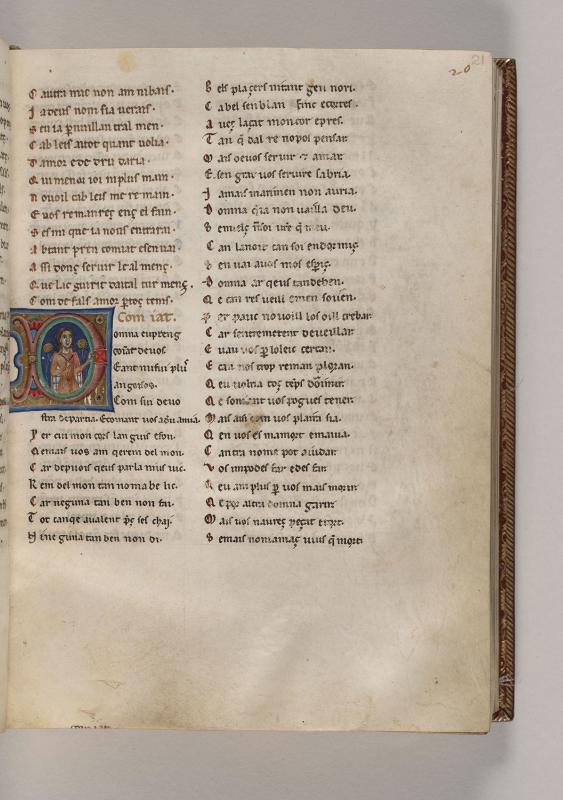 20
21
C autra mac non am nibais.
J a deus nom sia uerais.
S en ia per nuillan tral men.
C ab leis aitot quant uolia.
D amor e de dru daria.
Q ui menor ioi miplus main.
N ouoil cab leis me re main.
E uos remanres enç el fain.
S es mi que ia nous entrarai.
A btant pren comiat esen uai.
A ssi donç seruir leal menç.
Q ue lic guirit daital tur menç.
C om de fals amor per toç tems.
Com iat.
D omna eu preng
comiat de uos.
E anc mi fui plus
an goisos.
Com sui de uo
stra departia. E comant uos a deu amia.
P er cui mon cors lan guis e fon.
Q emais uos am qe rem del mon.
C ar depuois qeus parla mius uic.
R em del mon tan no ma be lic.
C ar neguna tan ben non fai.
T ot tanqe aualent pres ses chai.
N i ne guna tan ben non di.
B els plaçers ni tant gen nori.
C a bel senblan fine cortes.
A ueç laçat mon cor e pres.
T an q dal re no pois pensar.
M ais de uos seruir et amar.
E sen grat uos seruire sabria.
J amais marrimen non auria.
D omna qia non uailla deu.
S em eiç
C an la noit can soi endormiç
S en uai a uos mos esperiç.
D omna ar qeus tan de ben.
Q e can res ueill e men souen.
P er pauc no uoill los oill crebar
C ar sentremetent de ueillar.
E uau uos per lo leic cercan.
E can nos trop reman ploran.
Q eu uolria toç temps dormir.
Q e somiant uos pogues tener.
M ais aisi com uos plaira sia.
Q en uos es ma mort e ma uia.
C autra nome pot aiudar.
V os im podes far e desfar.
Q eu am plus per uos mais morir
Q e per altra domna garir.
M ais uos naures peçat e tort.
S e mais non amaç uius q mort.